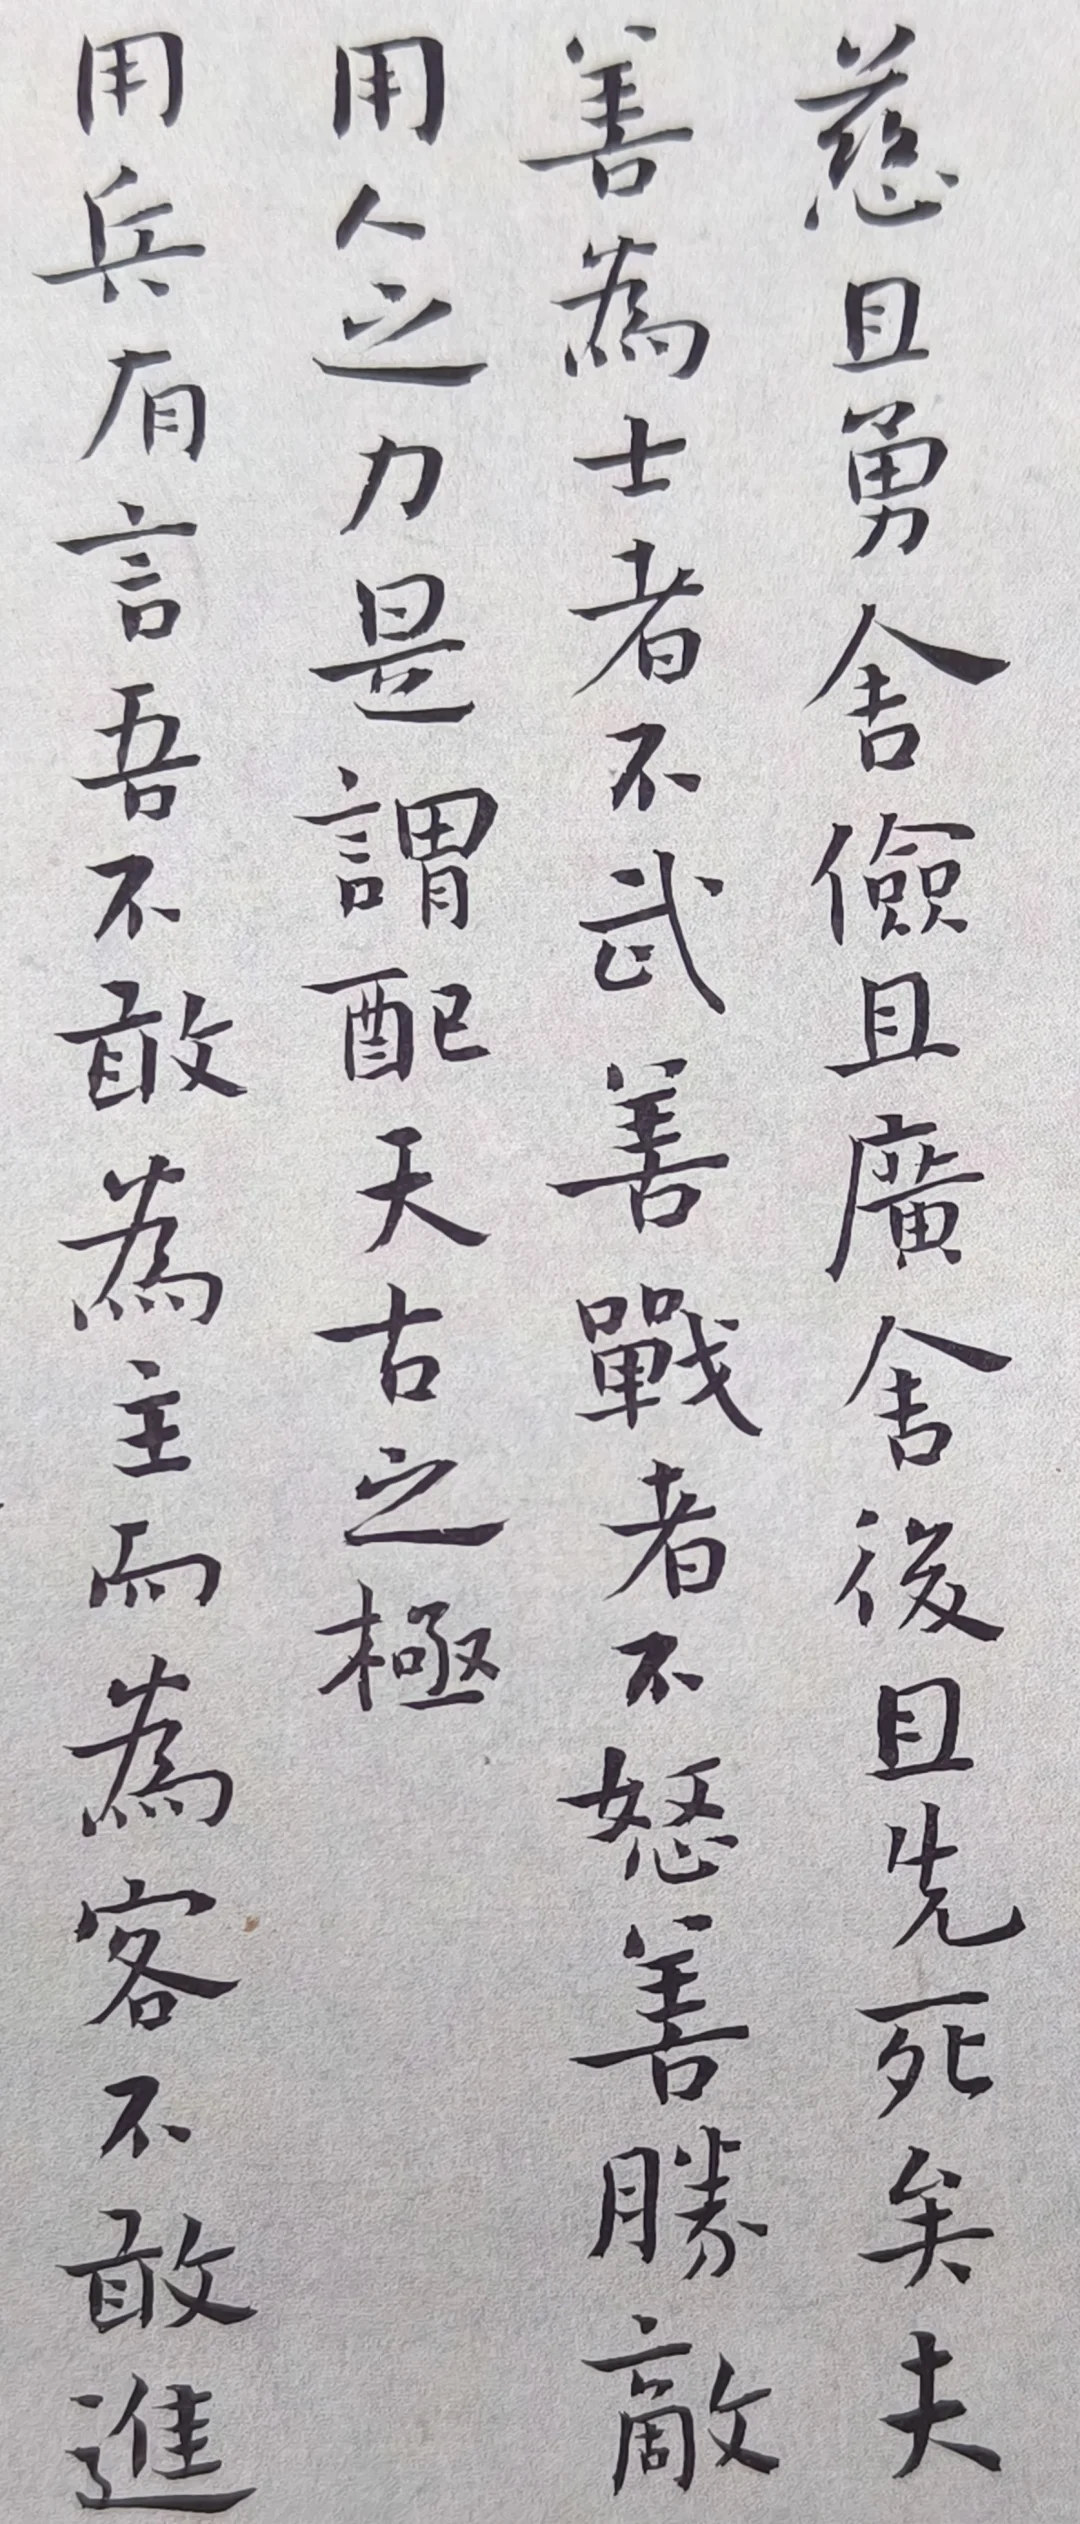 慈且勇舍儉且廣舍後且先死矣夫
善為士者不武善戰者不怒善勝敵
用人之力是謂配天古之極
用兵有言吾不敢為主而為客不敢進